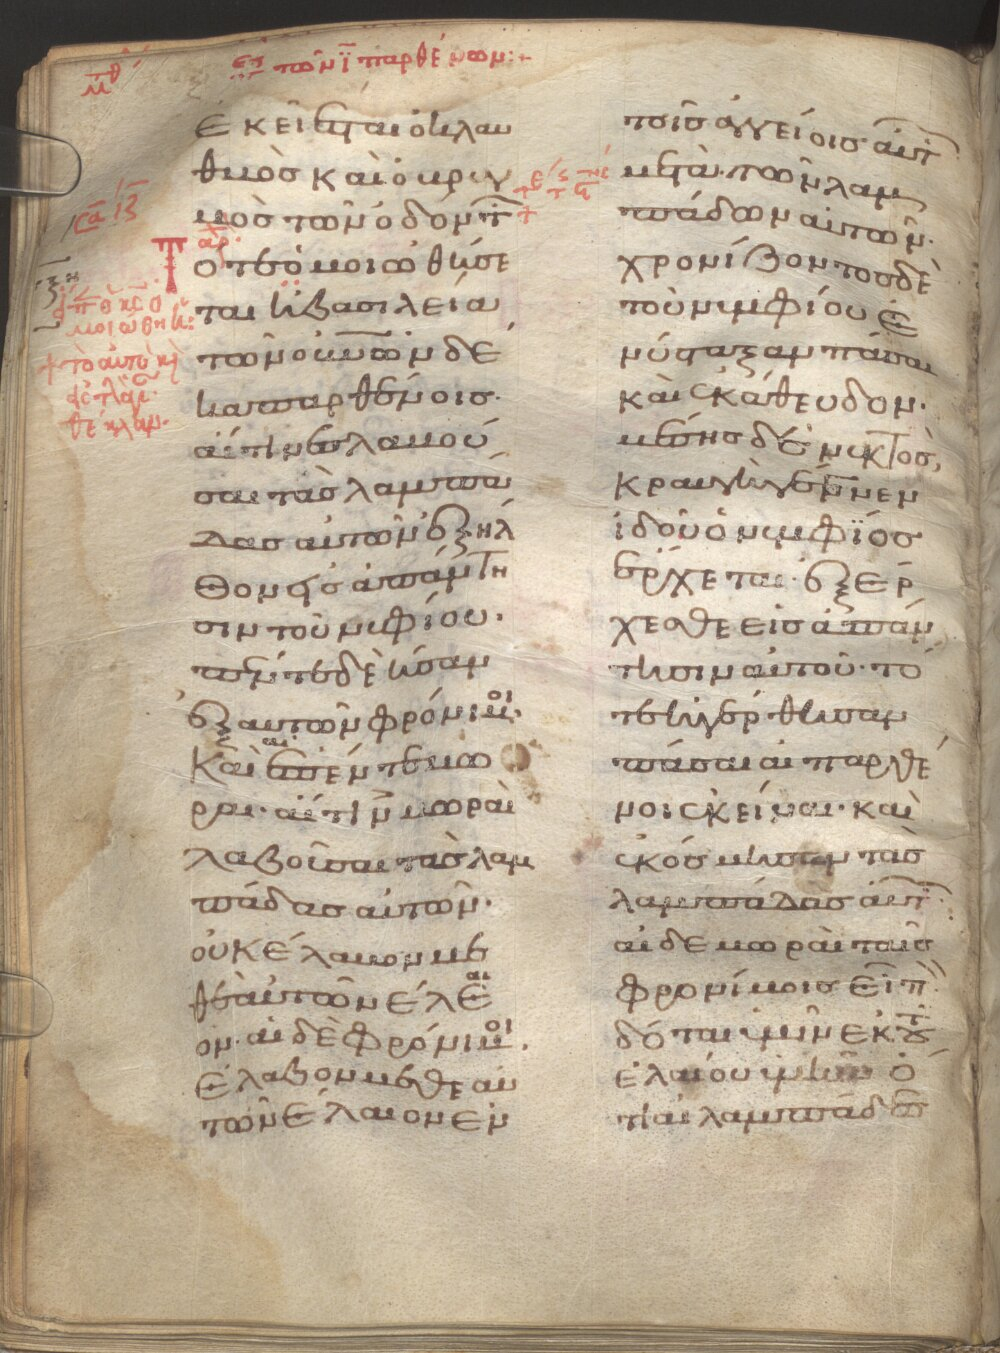 τῶν ῑ παρθένων:+
ἐκεῖ ἔσται ὁ κλαυ
θμὸσ καὶ ὁ βρυγ
μὸσ τῶν ὀδόντ
Τότε ὁμοιωθήσε
ται ἡ βασιλεία
τῶν οὐνῶν δέ
κα παρθένοις·
αἵτινεσ λαβού
σαι τὰσ λαμπά
δασ αὐτῶν ἐξῆλ
θον εἰσ ἀπάντη
σιν τοῦ νυμφίου·
πέντε δὲ ἦσαν
ἐξ αὐτῶν φρόνιμοι·
καὶ αἱ πέντε μω
ραι· αἵτιν μωραὶ
λαβοῦσαι τὰσ λαμ
πάδασ αὐτῶν·
οὐκ έλαβον με
θ' εαυτῶν ἔλαι
ον· αἱ δὲ φρόνιμοι·
ἔλαβον μεθ' εαυ
τῶν ἔλαιον ἐν
τοῖσ ἀγγείοισ αὐτ
μετὰ τῶν λαμ
πάδων αὐτῶν·
χρονίζοντοσ δὲ
τοῦ νυμφίου ἐ
νύσταξαν πᾶσαι
καὶ ἐκάθευδον·
μέσησ δὲ νυκτὸσ,
κραυγὴ γέγονεν
ἰδοὺ ὁ νυμφίοσ
ἔρχεται· ἐξέρ
χεσθε εἰσ ἀπάν
τησιν αὐτοῦ· τό
τε ἠγέρθησαν
πᾶσαι αἱ παρθέ
νοι ἐκείναι· καὶ
ἐκόσμησαν τὰσ
λαμπάδασ αὐτ·
αἱ δε μωραὶ ταῖσ
φρονίμοισ εἶπ
δότε ἡμῖν ἐκ τοῦ
ἐλαίου ὑμῶν ὅ
τι αἱ λαμπάδεσ